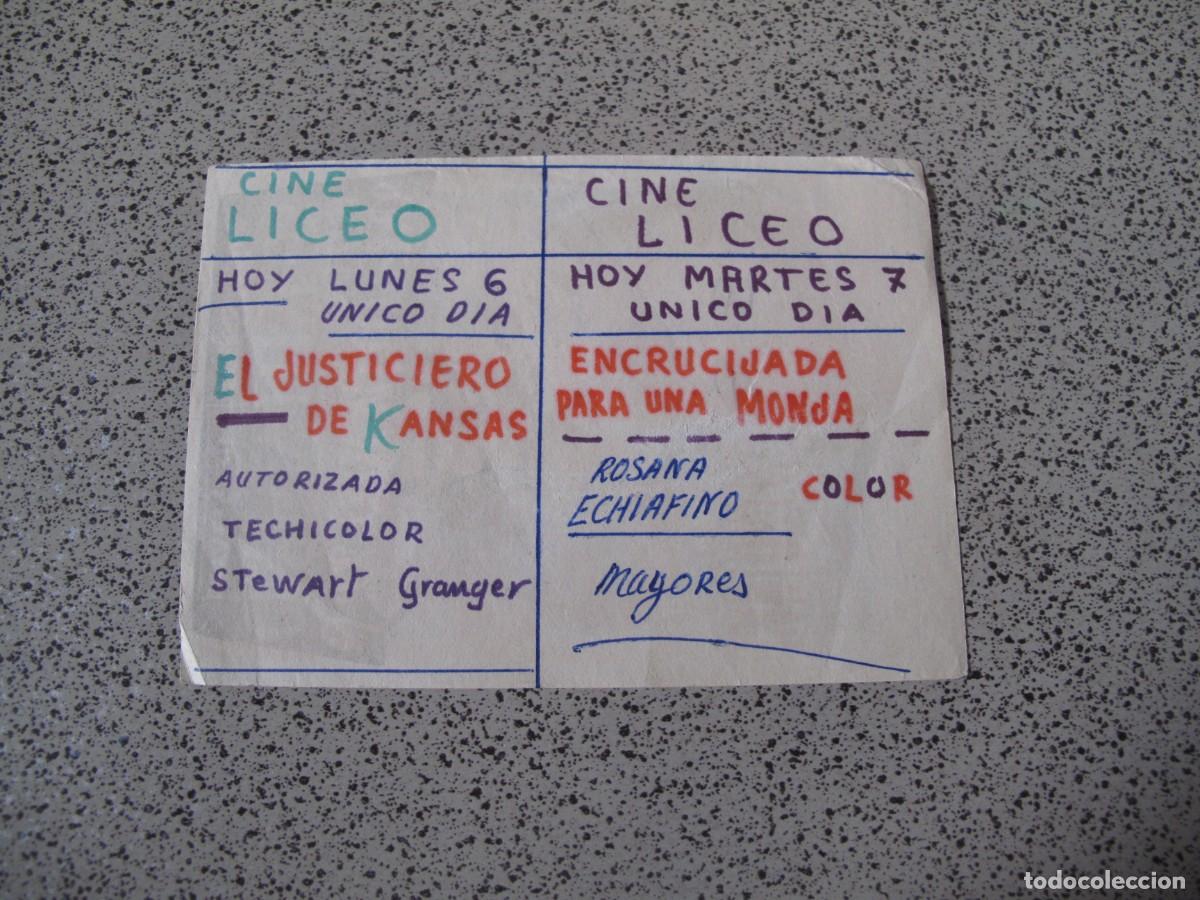 CINE
LICEO
HOY LUNES 6
UNICO DIA
EL JUSTICIERO
DE KANSAS
AUTORIZADA
TECHICOLOR
STEWART Granger
CINE
LICEO
HOY MARTES 7
UNICO DIA
ENCRUCIJADA
PARA UNA MONJA
ROSANA
ECHIAFINO
COLOR
Mayores
todocoleccion